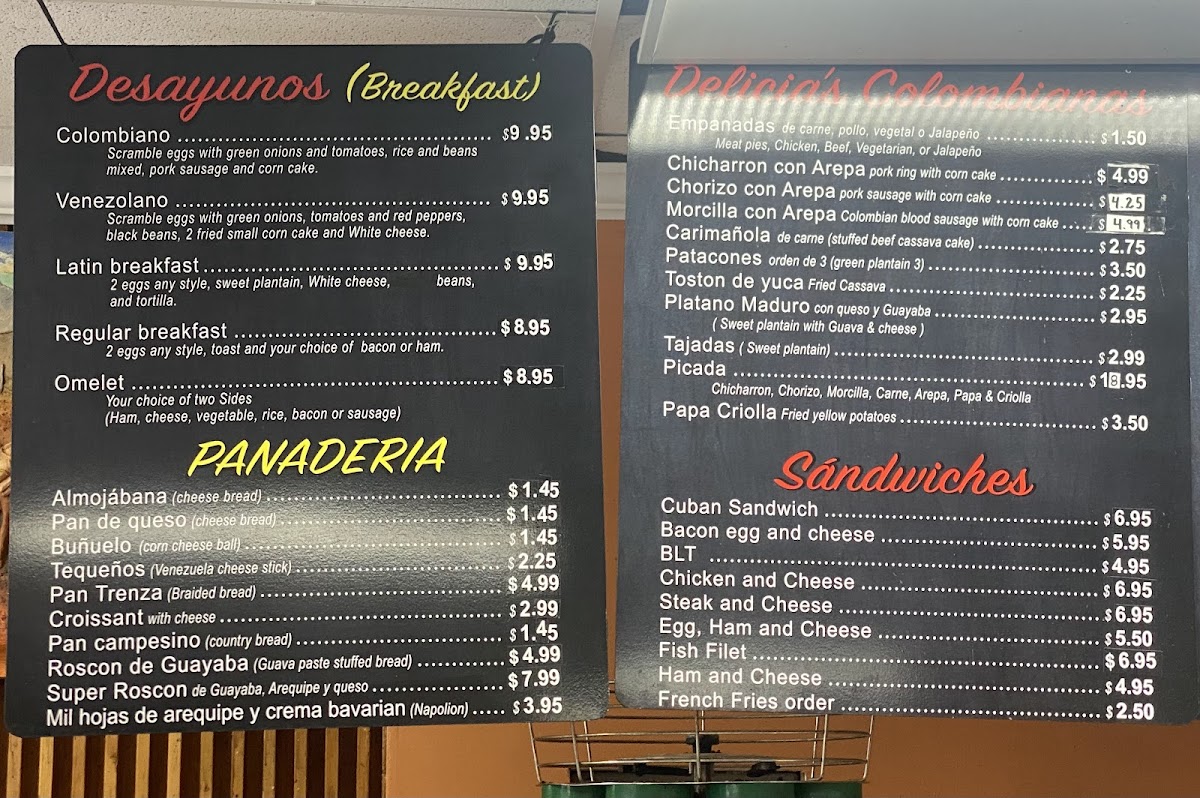 Desayunos (Breakfast)
Colombiano ........ $9.95
Scramble eggs with green onions and tomatoes, rice and beans
mixed, pork sausage and corn cake.
Venezolano ........ $9.95
Scramble eggs with green onions, tomatoes and red peppers,
black beans, 2 fried small corn cake and White cheese.
Latin breakfast ........ $9.95
2 eggs any style, sweet plantain, White cheese, beans,
and tortilla.
Regular breakfast ........ $8.95
2 eggs any style, toast and your choice of bacon or ham.
Omelet ........ $8.95
Your choice of two Sides
(Ham, cheese, vegetable, rice, bacon or sausage)
PANADERIA
Almojábana (cheese bread) ........ $1.45
Pan de queso (cheese bread) ........ $1.45
Buñuelo (corn cheese ball) ........ $1.45
Tequeños (Venezuela cheese stick) ........ $2.25
Pan Trenza (Braided bread) ........ $4.99
Croissant with cheese ........ $2.99
Pan campesino (country bread) ........ $1.45
Roscon de Guayaba (Guava paste stuffed bread) ........ $4.99
Super Roscon de Guayaba, Arequipe y queso ........ $7.99
Mil hojas de arequipe y crema bavarian (Napolion) ..... $3.95
Delicia's Colombianas
Empanadas de carne, pollo, vegetal o Jalapeño ........ $1.50
Meat pies, Chicken, Beef, Vegetarian, or Jalapeño
Chicharron con Arepa pork ring with corn cake ........ $4.99
Chorizo con Arepa pork sausage with corn cake ........ $4.25
Morcilla con Arepa Colombian blood sausage with corn cake .... $4.99
Carimañola de carne (stuffed beef cassava cake) ........ $2.75
Patacones orden de 3 (green plantain 3) ........ $3.50
Toston de yuca Fried Cassava ........ $2.25
Platano Maduro con queso y Guayaba ........ $2.95
( Sweet plantain with Guava & cheese )
Tajadas ( Sweet plantain) ........ $2.99
Picada ........ $18.95
Chicharron, Chorizo, Morcilla, Carne, Arepa, Papa & Criolla
Papa Criolla Fried yellow potatoes ........ $3.50
Sándwiches
Cuban Sandwich ........ $6.95
Bacon egg and cheese ........ $5.95
BLT ........ $4.95
Chicken and Cheese ........ $6.95
Steak and Cheese ........ $6.95
Egg, Ham and Cheese ........ $5.50
Fish Filet ........ $6.95
Ham and Cheese ........ $4.95
French Fries order ........ $2.50